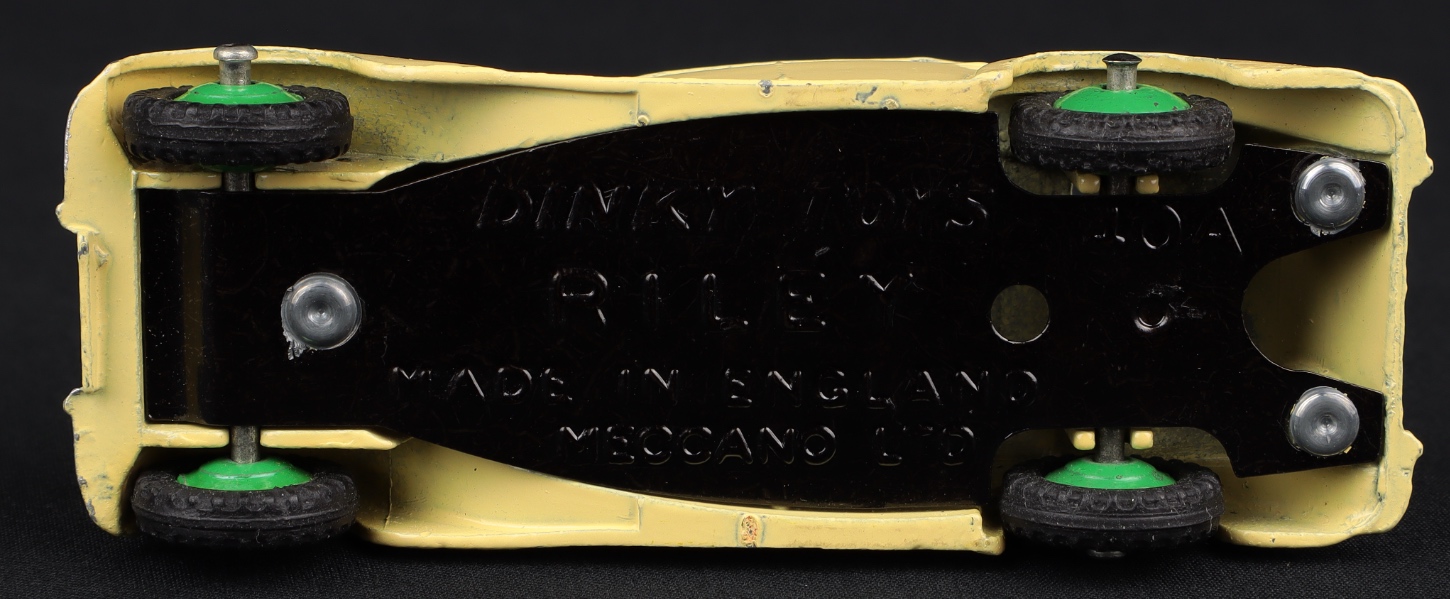 DINKY TOYS
40A
RILEY
MADE IN ENGLAND
MECCANO LTD